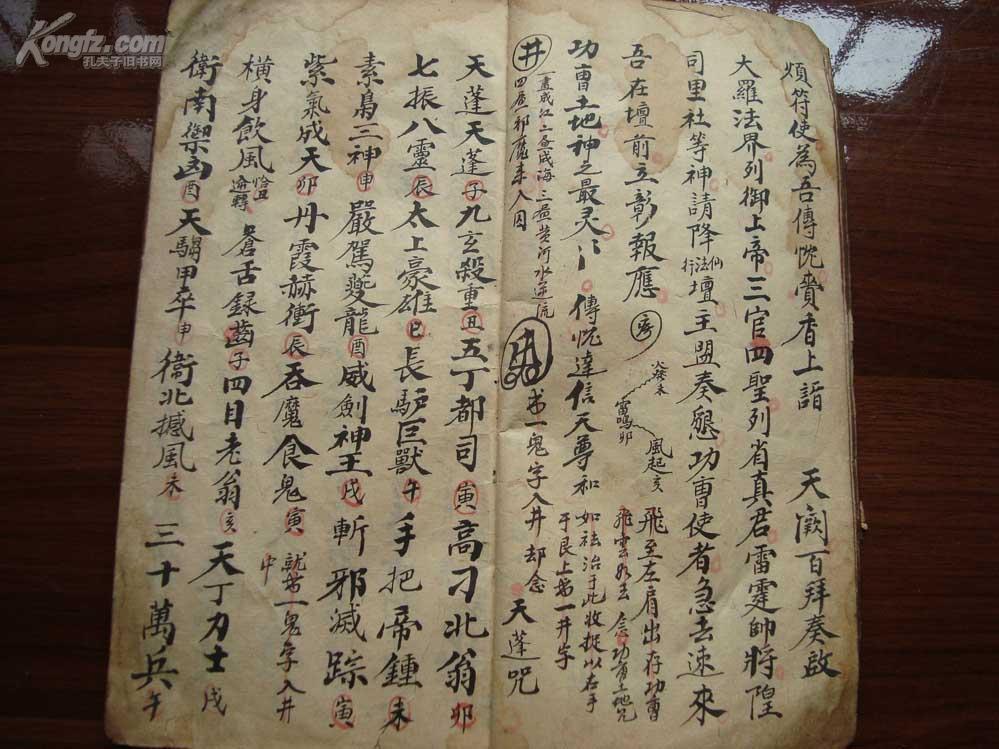 Kongfz.com
孔夫子旧书网
煩符使為吾傳忱賫香上詣 天闕百拜奏啟
大羅法界列御上帝三官四聖列省真君雷霆帥將隍
司里社等神請降仙法行壇主盟奏懇功曹使者急去速來
吾在壇前立彰報應
癸未
雷鳴卯
風起亥
飛至左肩出存功曹
飛雲 去 念功曹土地咒
功曹土地神之最灵 傳忱達信天尊和
如祛治于此收捉以右手
于艮上書一井字
井
一畫成江二畫成海三畫黄河水逆流
四畫邪魔来入囚
書一鬼字入井却念 天蓬咒
天蓬天蓬子九玄殺重丑五丁都司寅高刁北翁卯
七振八靈辰太上豪雄巳長驴巨獸午手把帝鍾未
素梟三神申嚴駕夔龍酉威劍神王戌斬邪滅踪寅
紫氣成天卯丹霞赫衝辰吞魔食鬼寅
就書一鬼字入井中
橫身飲風 蒼舌録齒子四目老翁亥天丁力士戌
衛南禦凶酉天騶甲卒申衛北撼風未三十萬兵午